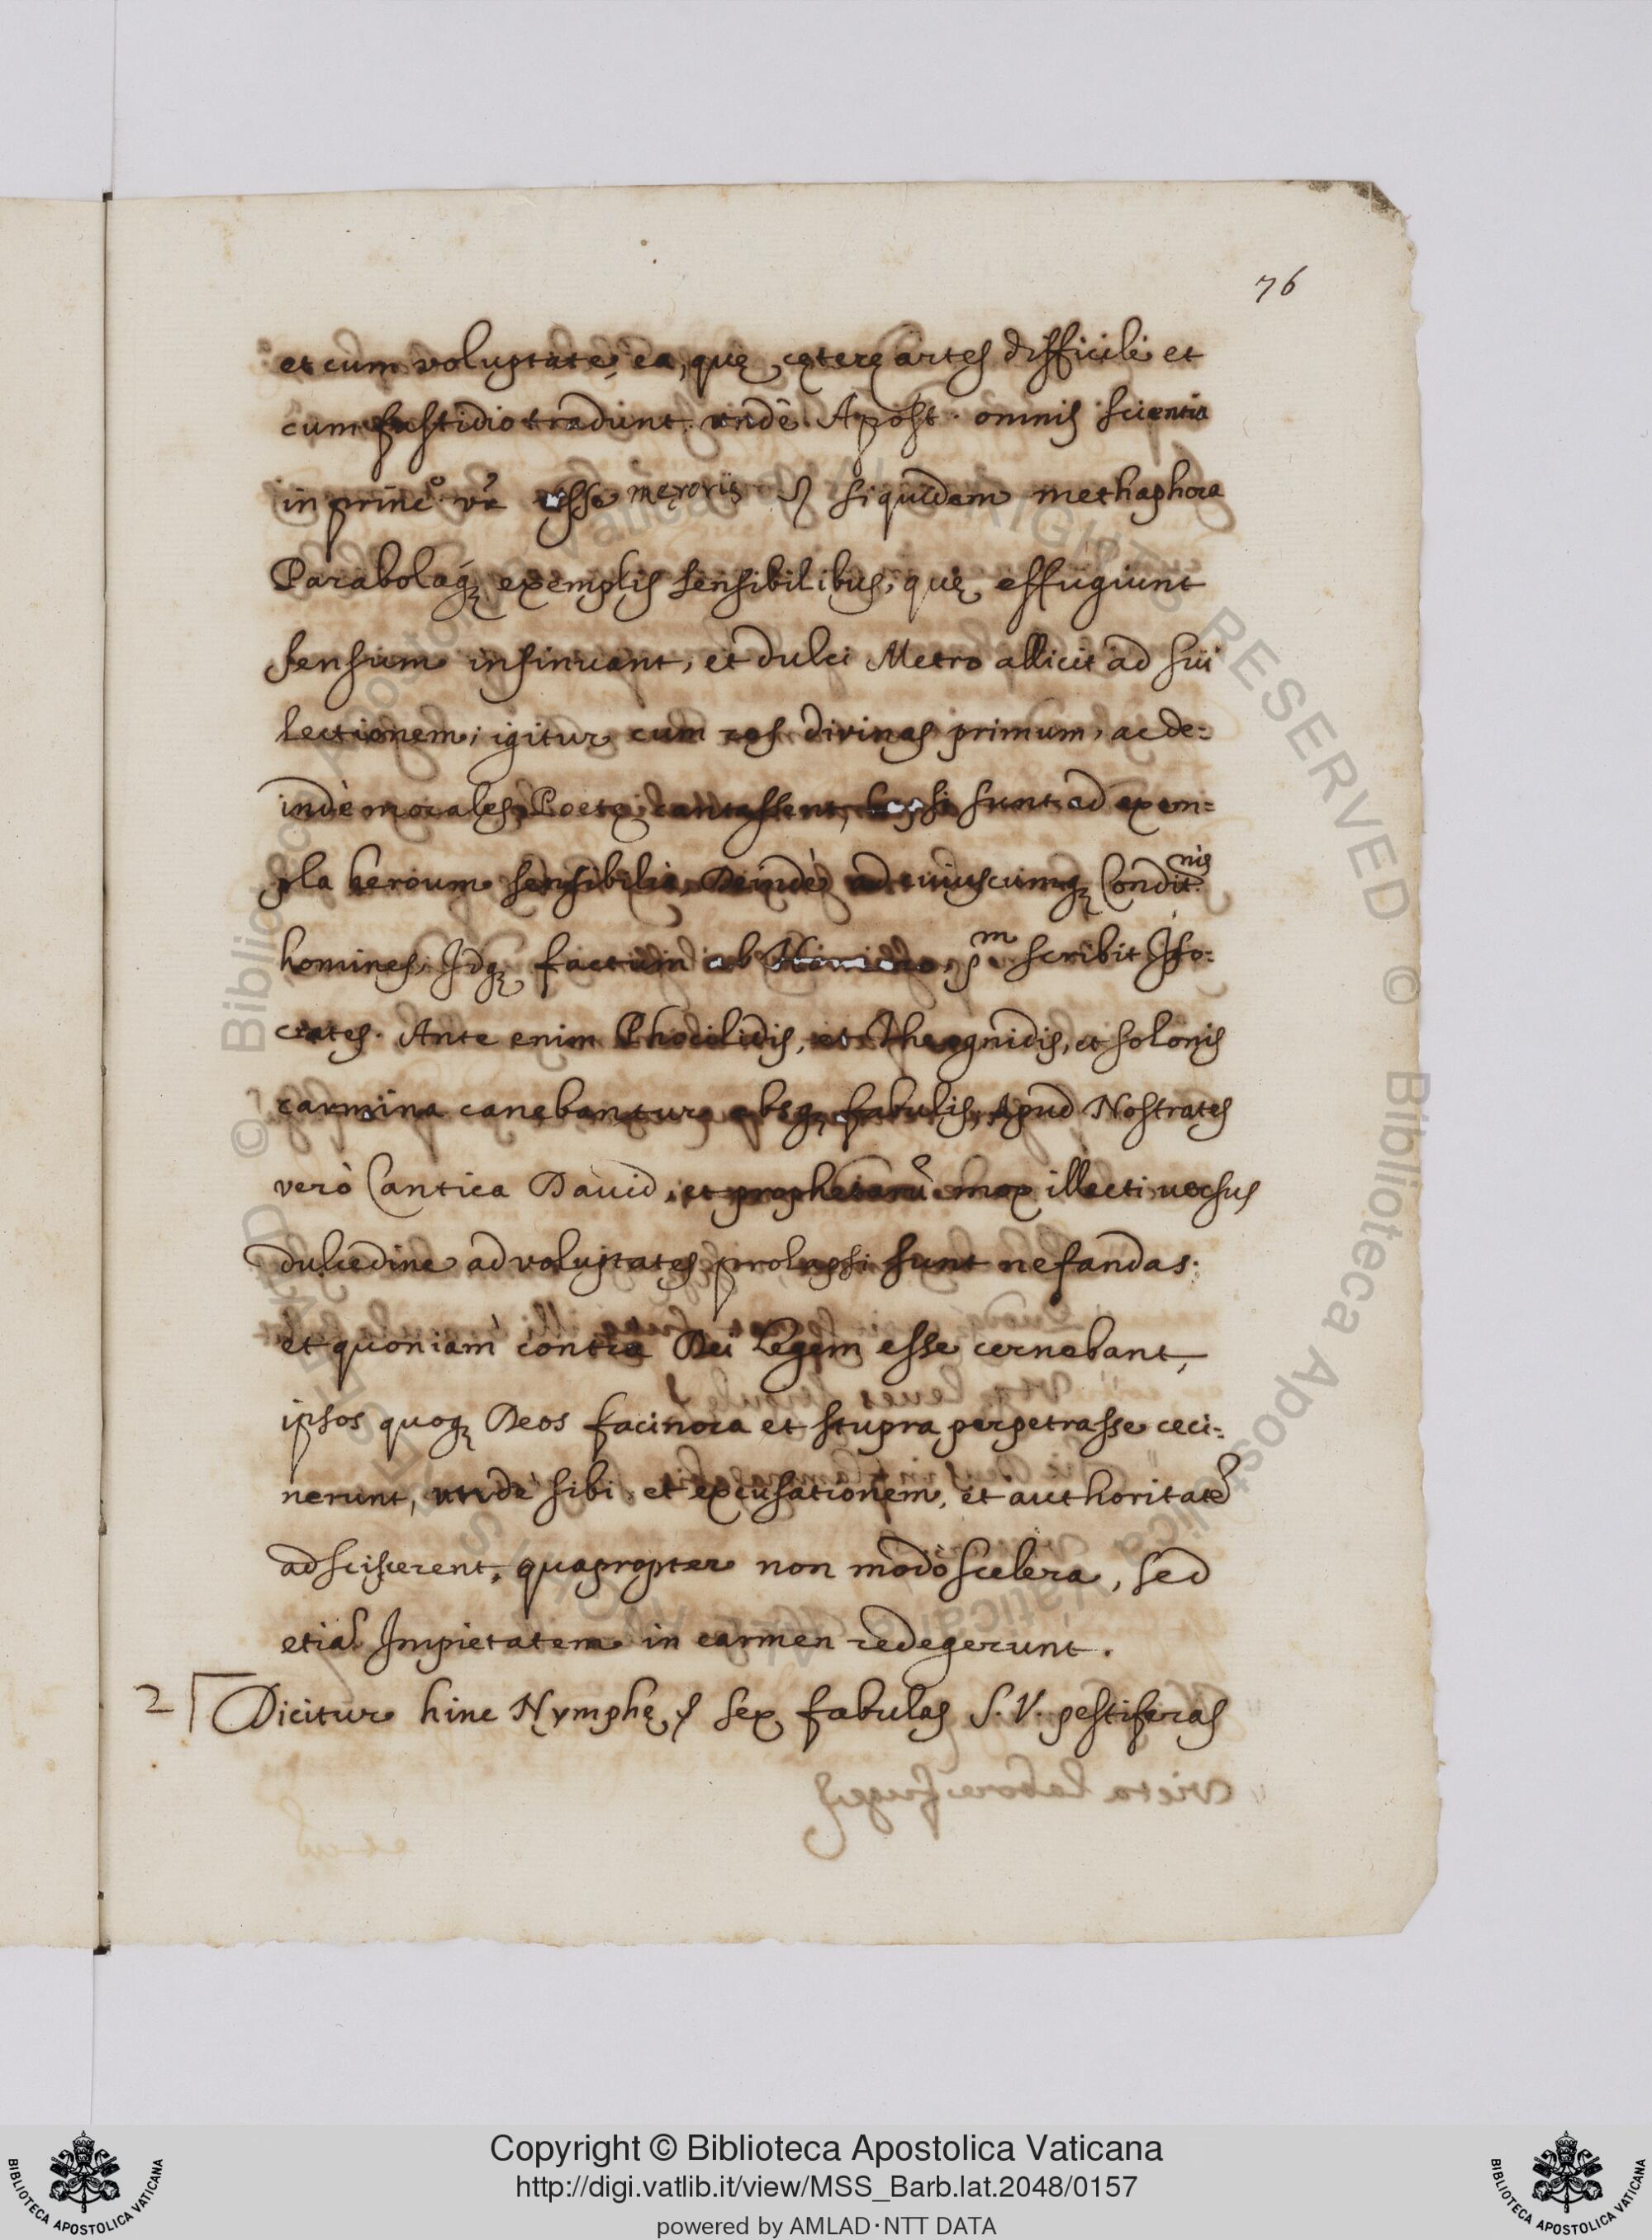 76
et cum voluptate, ea, quę cęterę artes difficilè et
cum fastidio tradunt. undè Apost. omnis scientia
in princ.º vr̃ esse męroris siquidem methaphora
Parabolaq́ꝫ exemplis sensibilibus, quę effugiunt
sensum insinuant, et dulci Metro allicit ad sui
lectionem; igitur cum res divinas primum, ac de=
indè morales Poetę cantassent, lapsi sunt ad exem=
pla heroum sensibilia, Deindè ad cuiuscumqꝫ Condit.nis
homines, Idqꝫ factum ab scribit Iso=
crates. Ante enim Phocilidis, et Theognidis, et solonis
carmina canebantur absqꝫ fabulis, Apud Nostrates
verò Cantica David, et prophetarũ mox illecti versus
dulcedine ad voluptates prolapsi sunt nefandas.
et quoniam contra Dei Legem esse cernebant,
ipsos quoqꝫ Deos facinora et stupra perpetrasse ceci=
nerunt, undè sibi et excusationem, et authoritatẽ
adsciscerent, quapropter non modò scelera, sed
etiã Impietatem in carmen redegerunt.
2 Dicitur hinc Nymphę sex fabulas S. V. pestiferas
© Biblioteca Apostolica Vaticana ALL RIGHTS RESERVED
Copyright © Biblioteca Apostolica Vaticana
http://digi.vatlib.it/view/MSS_Barb.lat.2048/0157
powered by AMLAD·NTT DATA
BIBLIOTECA APOSTOLICA VATICANA
BIBLIOTECA APOSTOLICA VATICANA